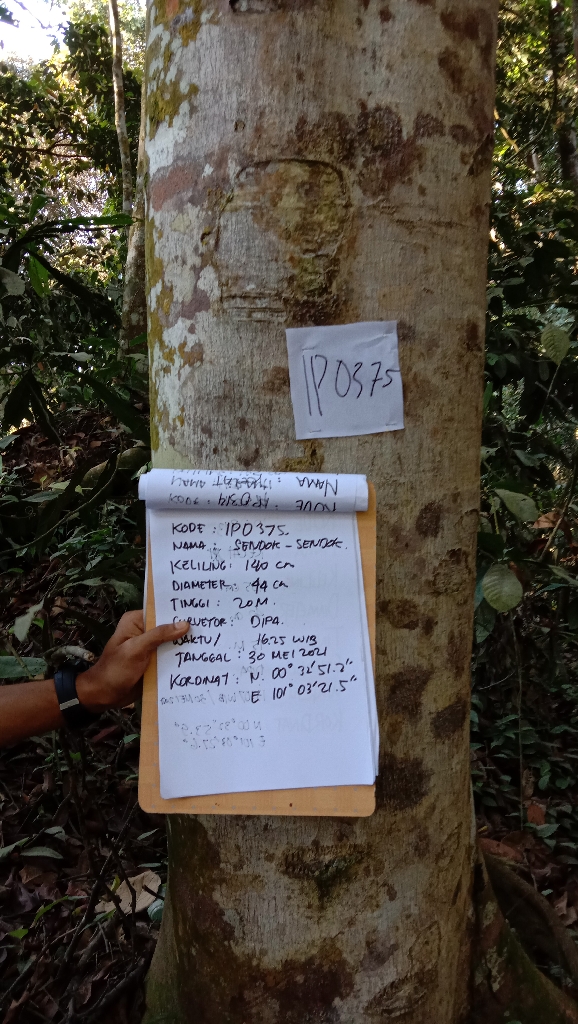 IP0375
KODE : IP0375.
NAMA : SENDOK-SENDOK.
KELILING : 140 cm
DIAMETER : 44 cm
TINGGI : 20 M.
SURVEYOR : DIPA.
WAKTU / 1625 WIB
TANGGAL : 30 MEI 2021
KORDINAT : N 00° 32' 51.2"
E 101° 03' 21.5"